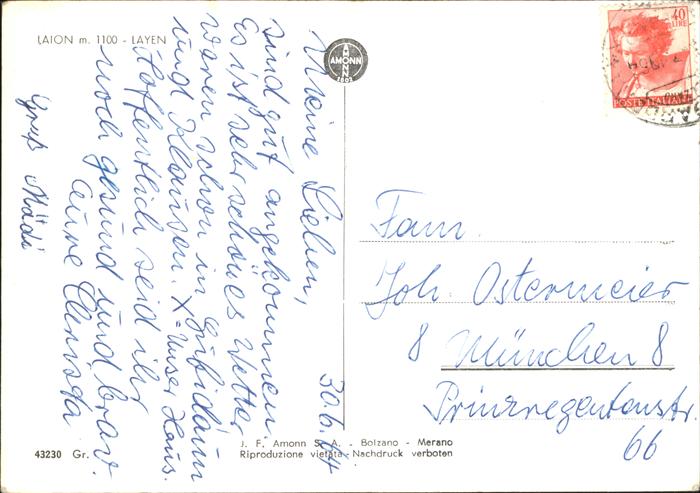 LAION m. 1100 - LAYEN
AMONN
AMONN
1802
40
LIRE
POSTE ITALIANE
Meine Lieben,
sind gut angekommen
Es ist sehr schönes Wetter,
waren schon in Gufidaun
und Klausen. X = unser Haus.
Hoffentlich seid ihr
noch gesund und brav.
Eure
Gruß Mädi
30.6.64
Fam.
Joh. Ostermeier
8 München 8
Prinzregentenstr.
66
43230 Gr.
J. F. Amonn S. A. - Bolzano - Merano
Riproduzione vietata - Nachdruck verboten